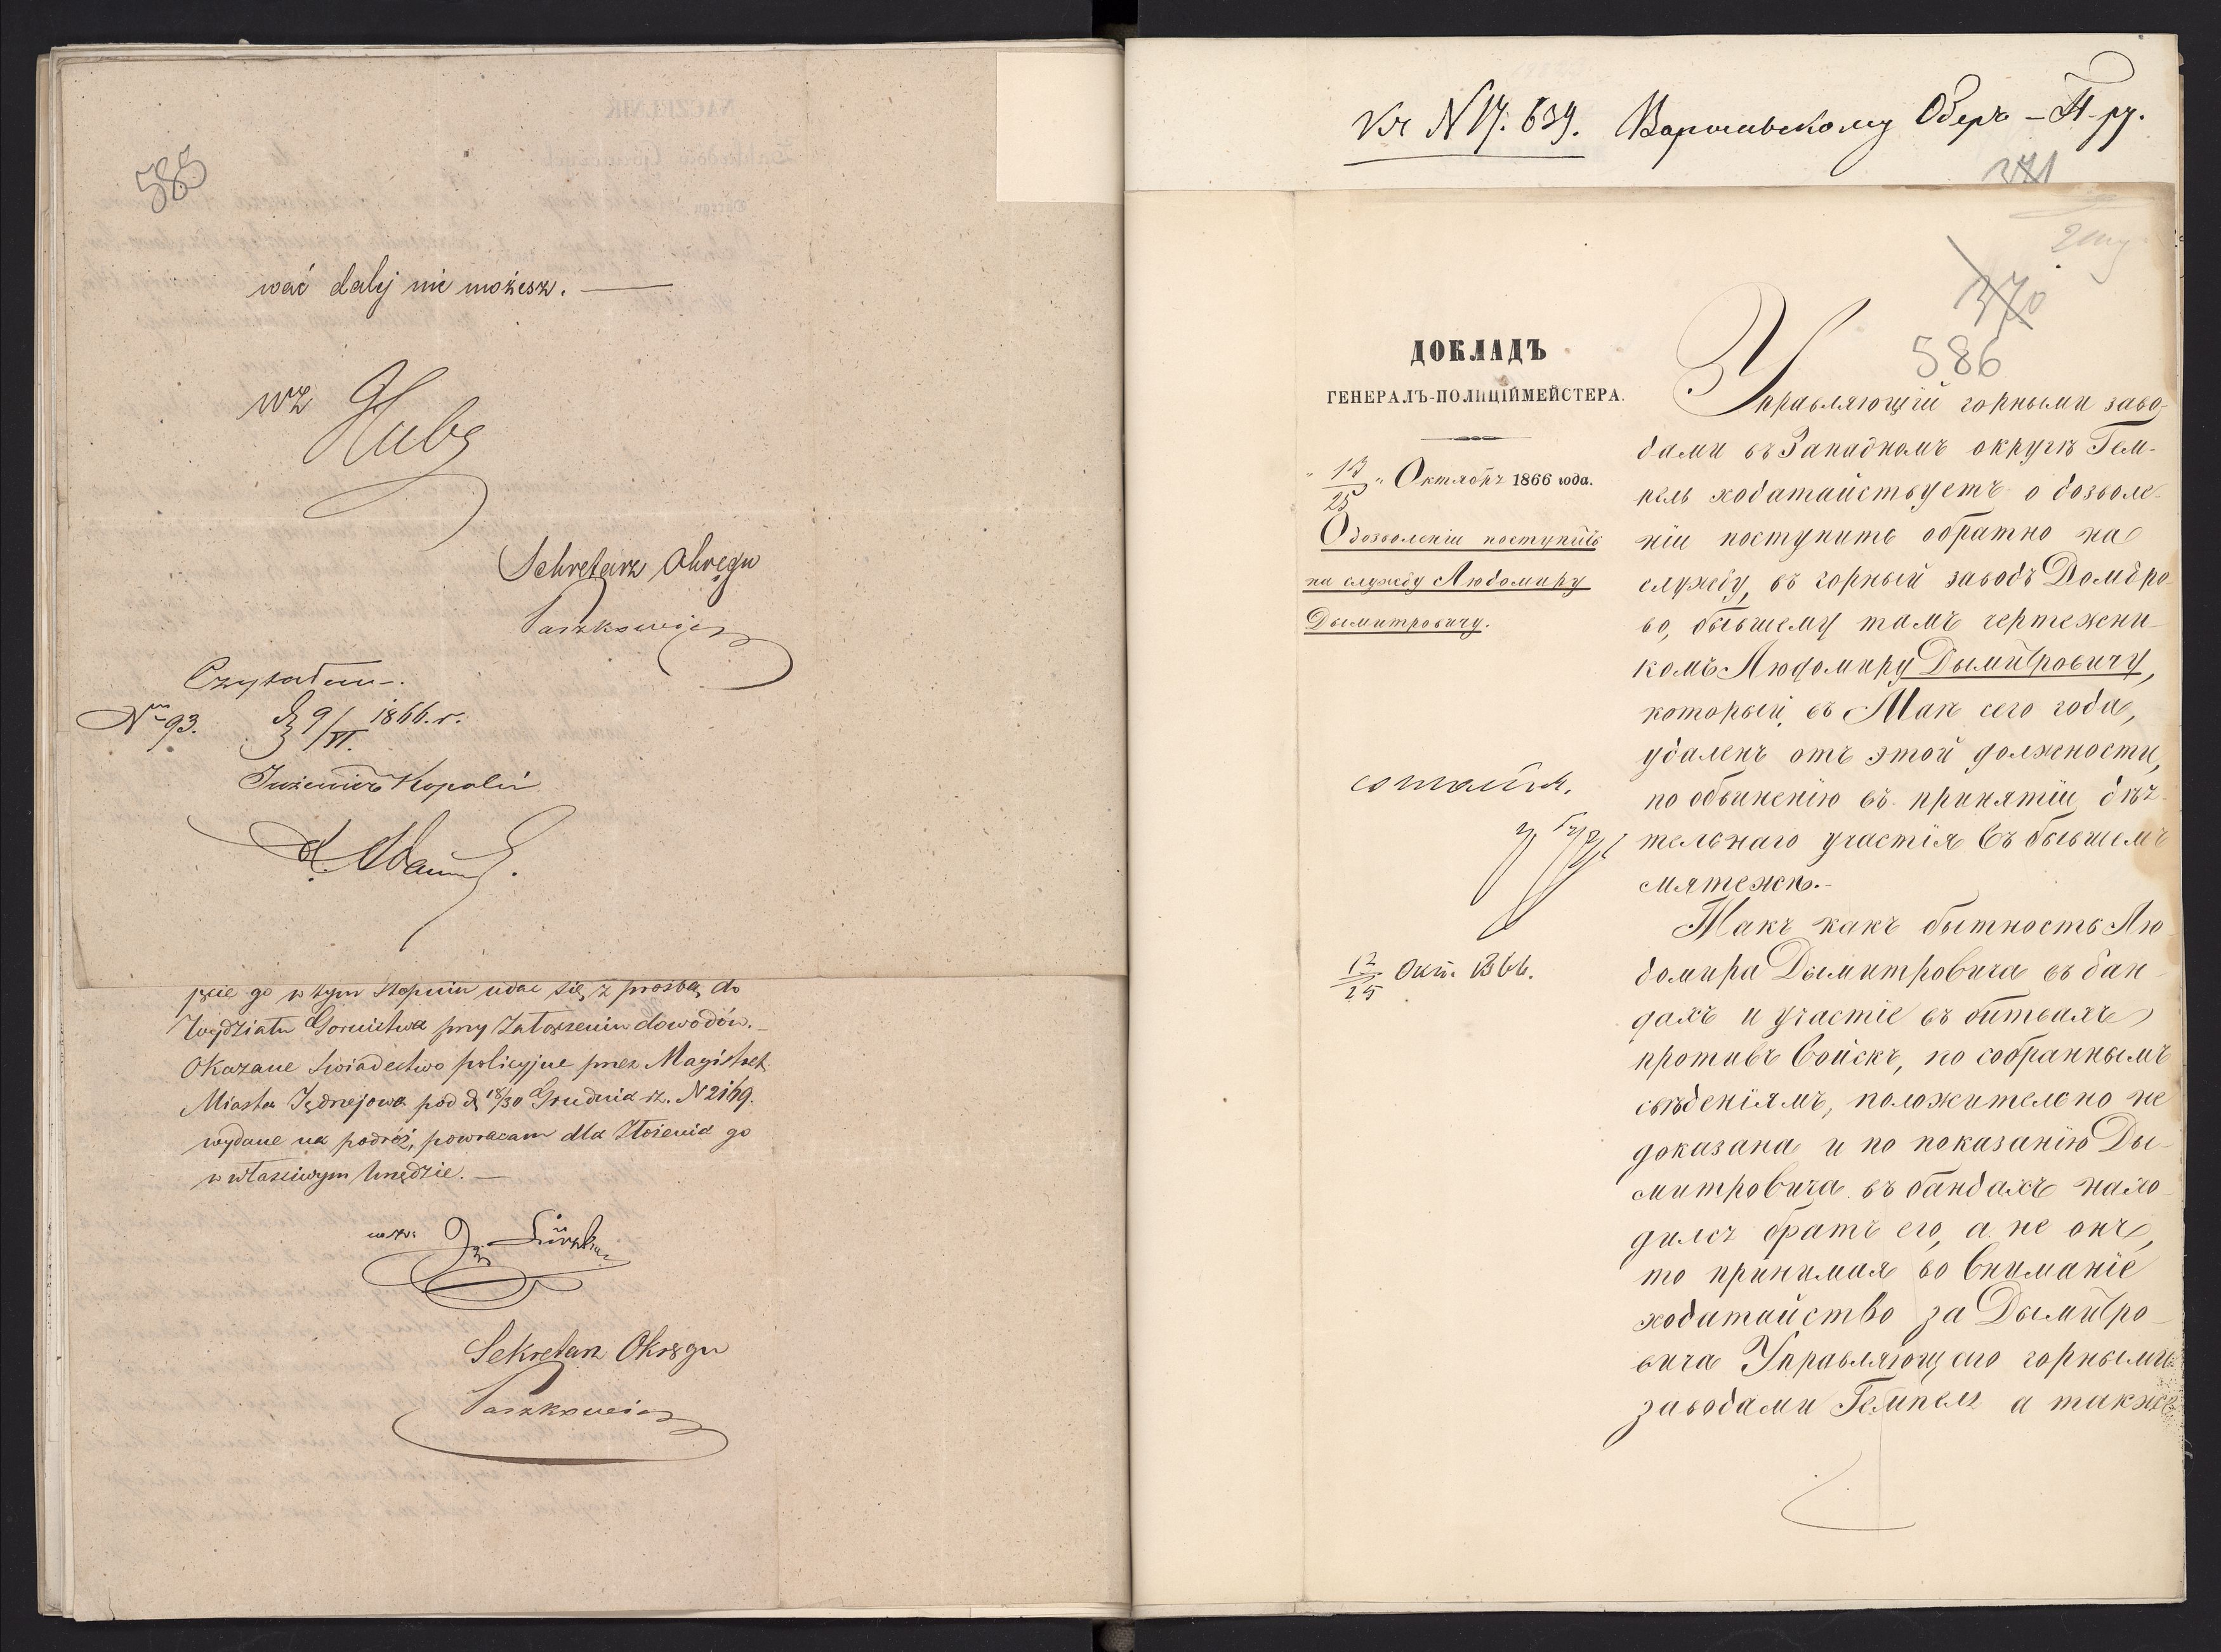 585
wać dalej nie możesz. —
wz Hube
Sekretarz Okręgu
Paszkowicz
Czytałem.
№ 93. d 9/VI 1866. r.
Inżenier Kopalń
jście go w tym stopniu udać się z prośbą do
Wydziału Górnictwa przy załączeniu dowodów. —
Okazane świadectwo policyjne przez Magistrat
Miasta Jędrzejowa pod d 18/30 Grudnia rz. N 2169.
wydane na podróż, powracam dla złożenia go
w właściwym Urzędzie. —
Sekretarz Okręgu
Paszkowicz
Къ N 17.639. Варшавскому Оберъ-П-ру.
371
370
586
ДОКЛАДЪ
ГЕНЕРАЛЪ-ПОЛИЦІЙМЕЙСТЕРА.
„13/25„ Октября 1866 года.
О дозволеніи поступить
на службу Людомиру
Дымитровичу.
согласенъ.
13/25 Окт. 1866.
Управляющій горными заво-
дами въ Западномъ округѣ Гем-
пель ходатайствуетъ о дозволе-
ніи поступить обратно на
службу, въ горный заводъ Домбро-
во, бывшему тамъ чертежни-
комъ Людомиру Дымитровичу,
который, въ Маѣ сего года,
удаленъ отъ этой должности,
по обвиненію въ принятіи дѣя-
тельнаго участія въ бывшемъ
мятежѣ.-
Такъ какъ бытность Лю-
домира Дымитровича въ бан-
дахъ и участіе въ битвахъ
противъ войскъ, по собраннымъ
свѣденіямъ, положительно не
доказана и по показанію Ды-
митровича въ бандахъ нахо-
дился братъ его, а не онъ,
то принимая во вниманіе
ходатайство за Дымитро-
вича Управляющаго горными
заводами Гемпеля а также